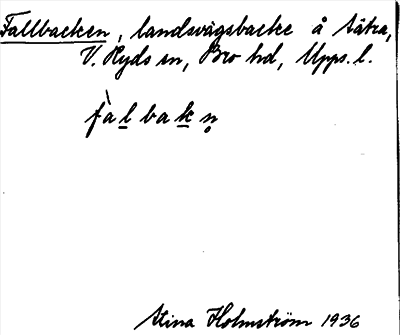 Fallbacken, landsvägsbacke å Sätra,
V. Ryds sn, Bro hd, Upps. l.
fàl bakn̥
Stina Holmström 1936